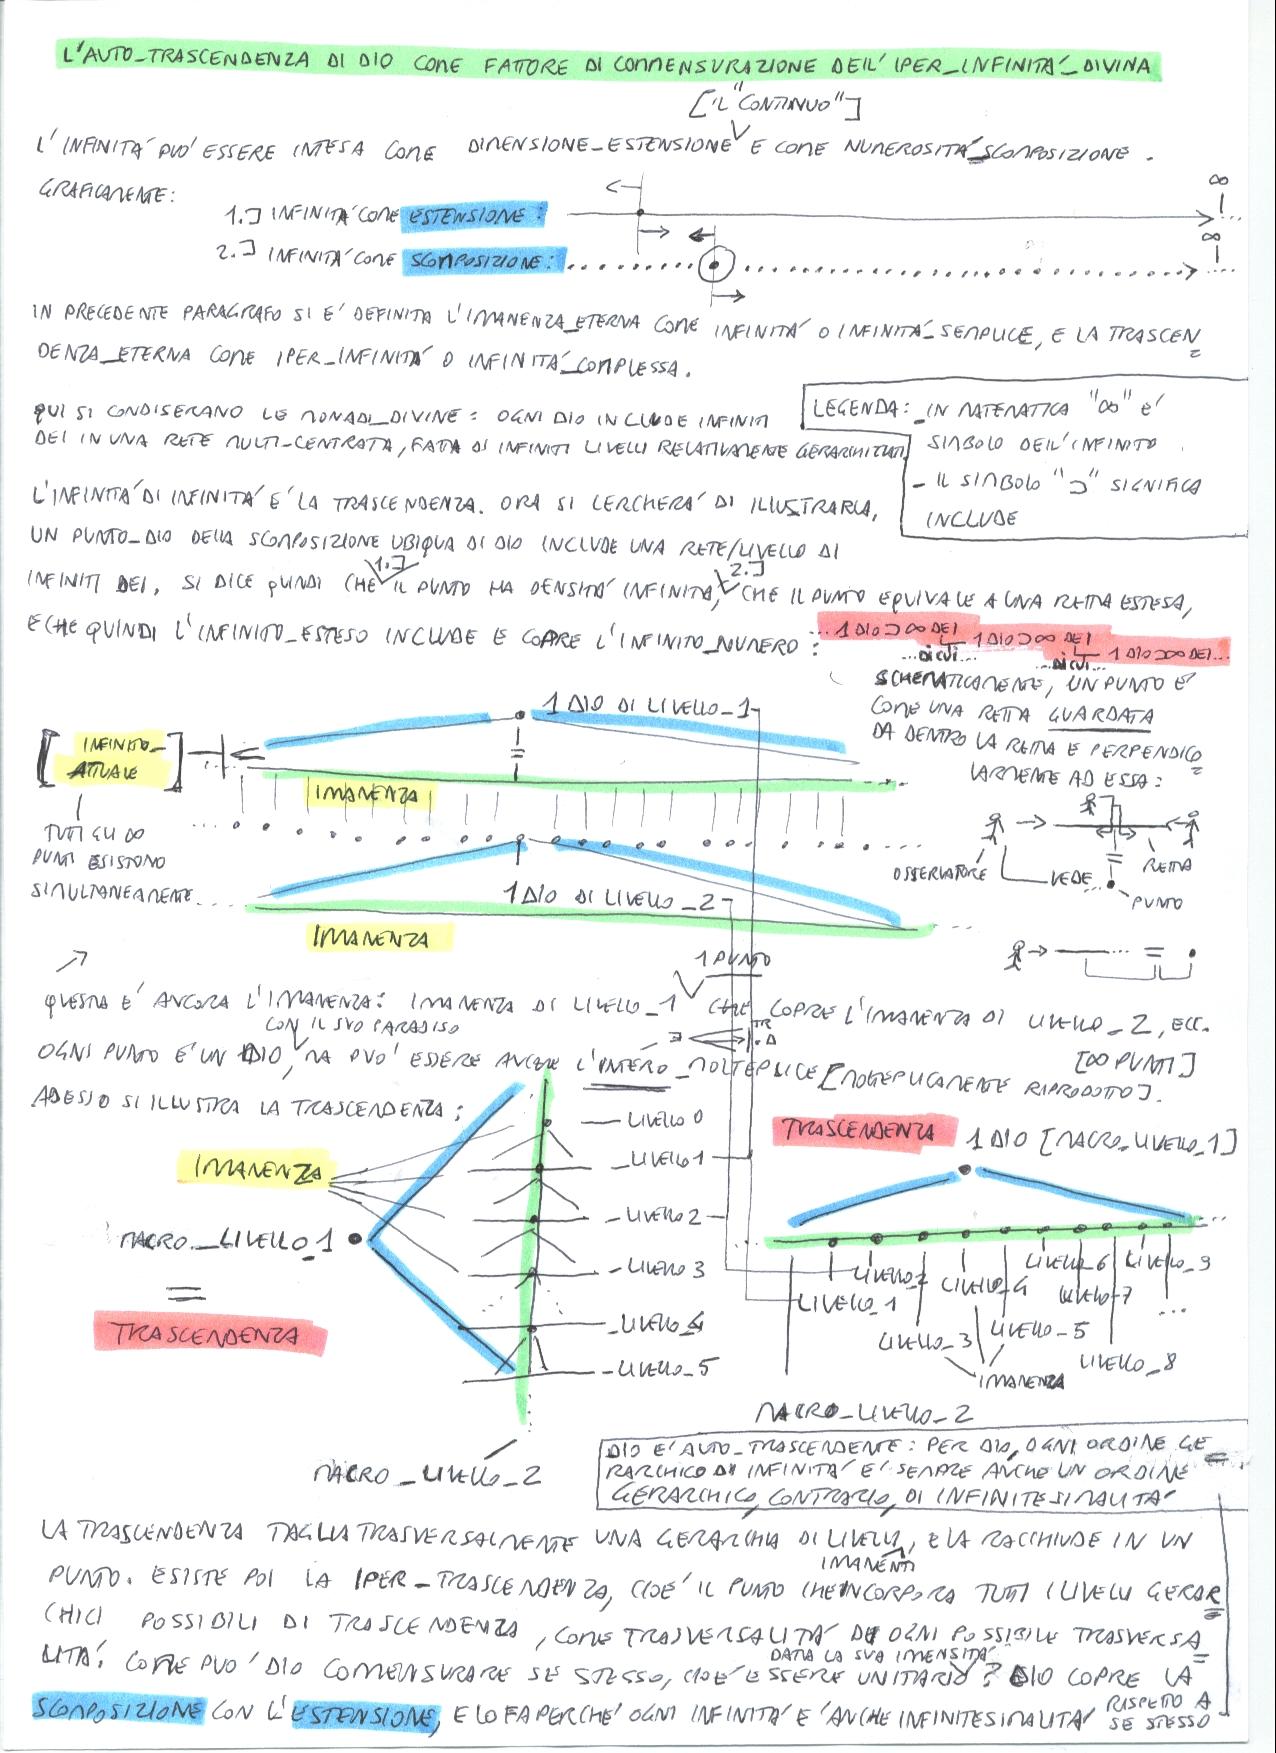 L'AUTO_TRASCENDENZA DI DIO COME FATTORE DI COMMENSURAZIONE DELL'IPER_INFINITÀ_DIVINA
[IL "CONTINUO"]
L'INFINITÀ PUÒ ESSERE INTESA COME DIMENSIONE_ESTENSIONE E COME NUMEROSITÀ_SCOMPOSIZIONE.
GRAFICAMENTE:
∞
1.] INFINITÀ COME ESTENSIONE:
∞
2.] INFINITÀ COME SCOMPOSIZIONE:
IN PRECEDENTE PARAGRAFO SI È DEFINITA L'IMANENZA_ETERNA COME INFINITÀ O INFINITÀ_SEMPLICE, E LA TRASCEN=
DENZA_ETERNA COME IPER_INFINITÀ O INFINITÀ_COMPLESSA.
QUI SI CONDISERANO LE MONADI_DIVINE: OGNI DIO INCLUDE INFINITI
DEI IN UNA RETE MULTI-CENTRATA, FATTA DI INFINITI LIVELLI RELATIVAMENTE GERARCHIZZATI
LEGENDA: _IN MATEMATICA "∞" È
SIMBOLO DELL'INFINITO.
- IL SIMBOLO "⊃" SIGNIFICA
INCLUDE
L'INFINITÀ DI INFINITÀ È LA TRASCENDENZA. ORA SI CERCHERÀ DI ILLUSTRARLA.
UN PUNTO_DIO DELLA SCOMPOSIZIONE UBIQUA DI DIO INCLUDE UNA RETE/LIVELLO DI
1.] 2.]
INFINITI DEI, SI DICE QUINDI CHE IL PUNTO HA DENSITÀ INFINITA, CHE IL PUNTO EQUIVALE A UNA RETTA ESTESA,
E CHE QUINDI L'INFINITO_ESTESO INCLUDE E COPRE L'INFINITO_NUMERO:
...1 DIO ⊃ ∞ DEI
...DI CUI... 1 DIO ⊃ ∞ DEI
...DI CUI... 1 DIO ⊃ ∞ DEI...
SCHEMATICAMENTE, UN PUNTO È
COME UNA RETTA GUARDATA
DA DENTRO LA RETTA E PERPENDICO=
LARMENTE AD ESSA:
1 DIO DI LIVELLO_1
[INFINITO_
ATTUALE]
IMANENZA
TUTTI GLI ∞
PUNTI ESISTONO
SIMULTANEAMENTE
OSSERVATORE
VEDE
RETTA
PUNTO
1 DIO DI LIVELLO_2
IMANENZA
1 PUNTO
QUESTA È ANCORA L'IMANENZA: IMANENZA DI LIVELLO_1 CHE COPRE L'IMANENZA DI LIVELLO_2, ECC.
CON IL SUO PARADISO
[∞ PUNTI]
OGNI PUNTO È UN DIO, MA PUÒ ESSERE ANCHE L'INTERO_MOLTEPLICE [MOLTEPLICAMENTE RIPRODOTTO].
ADESSO SI ILLUSTRA LA TRASCENDENZA:
LIVELLO 0
LIVELLO 1
LIVELLO 2
LIVELLO 3
LIVELLO_4
LIVELLO_5
IMANENZA
MACRO_LIVELLO_1
=
TRASCENDENZA
MACRO_LIVELLO_2
TRASCENDENZA 1 DIO [MACRO_LIVELLO_1]
LIVELLO_1
LIVELLO_2
LIVELLO_3
LIVELLO_4
LIVELLO_5
LIVELLO_6
LIVELLO_7
LIVELLO_8
LIVELLO_9
...
IMANENZA
MACRO_LIVELLO_2
DIO È AUTO_TRASCENDENTE: PER DIO, OGNI ORDINE GE=
RARCHICO DI INFINITÀ È SEMPRE ANCHE UN ORDINE
GERARCHICO, CONTRARIO, DI INFINITESIMALITÀ
LA TRASCENDENZA TAGLIA TRASVERSALMENTE UNA GERARCHIA DI LIVELLI, E LA RACCHIUDE IN UN
IMANENTI
PUNTO. ESISTE POI LA IPER-TRASCENDENZA, CIOÈ IL PUNTO CHE INCORPORA TUTTI I LIVELLI GERAR=
CHICI POSSIBILI DI TRASCENDENZA, COME TRASVERSALITÀ DI OGNI POSSIBILE TRASVERSA=
DATA LA SUA IMENSITÀ
LITÀ. COME PUÒ DIO COMENSURARE SE STESSO, CIOÈ ESSERE UNITARIO? DIO COPRE LA
SCOMPOSIZIONE CON L'ESTENSIONE, E LO FA PERCHÉ OGNI INFINITÀ È ANCHE INFINITESIMALITÀ RISPETTO A
SE STESSO